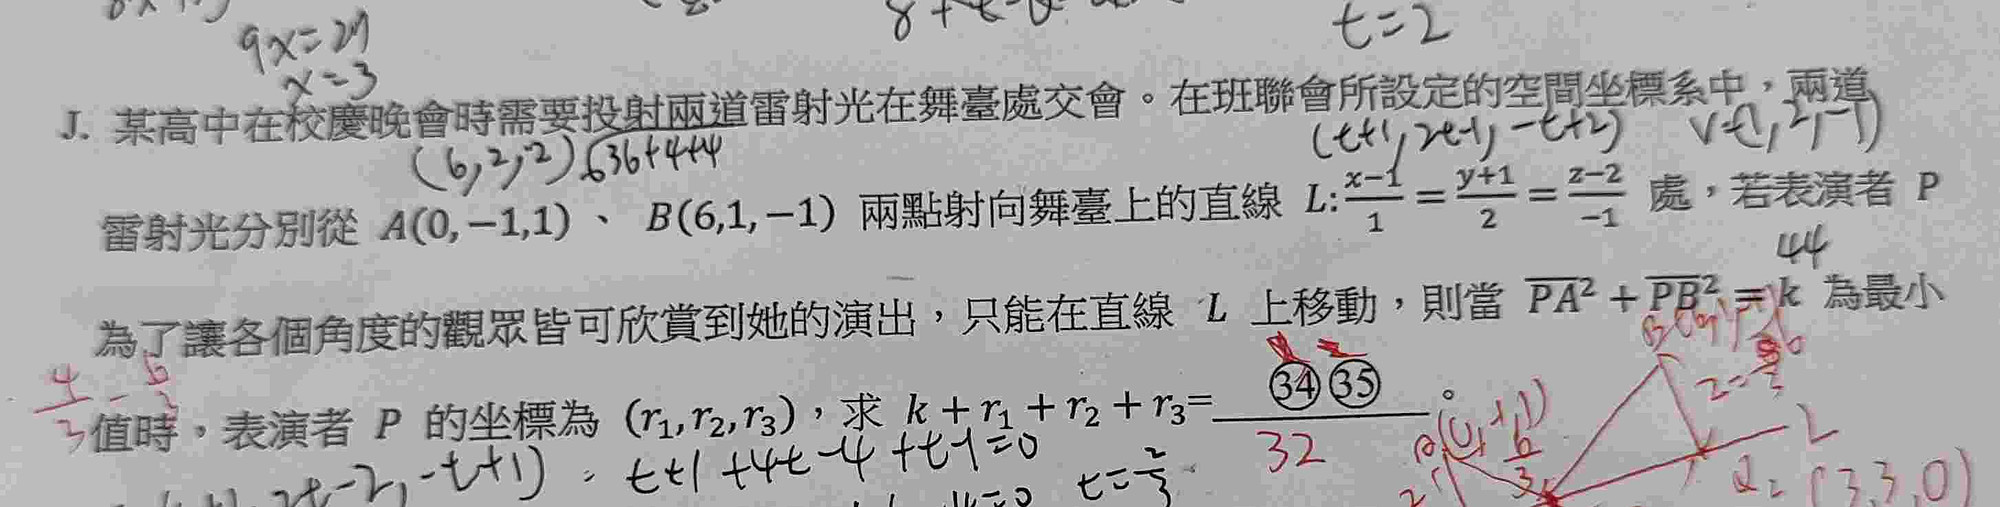 t=2
9x=27
x=3
J. 某高中在校慶晚會時需要投射兩道雷射光在舞臺處交會。在班聯會所設定的空間坐標系中，兩道
(6,2,-2) √36+4+4
(t+1, 2t-1, -t+2)
雷射光分別從 A(0,−1,1)、 B(6,1,−1) 兩點射向舞臺上的直線 L: \frac{x−1}{1} = \frac{y+1}{2} = \frac{z−2}{−1} 處，若表演者 P
44
為了讓各個角度的觀眾皆可欣賞到她的演出，只能在直線 L 上移動，則當 \overline{PA}² + \overline{PB}² = k 為最小
值時，表演者 P 的坐標為 (r₁,r₂,r₃)，求 k + r₁ + r₂ + r₃= ㉞㉟ 。
32
t+1+4t-4+t-1=0
t=\frac{2}{3}
L
(3,3,0)